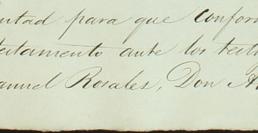 untad para que confor
testamento ante los testig
anuel Rosales, Don A